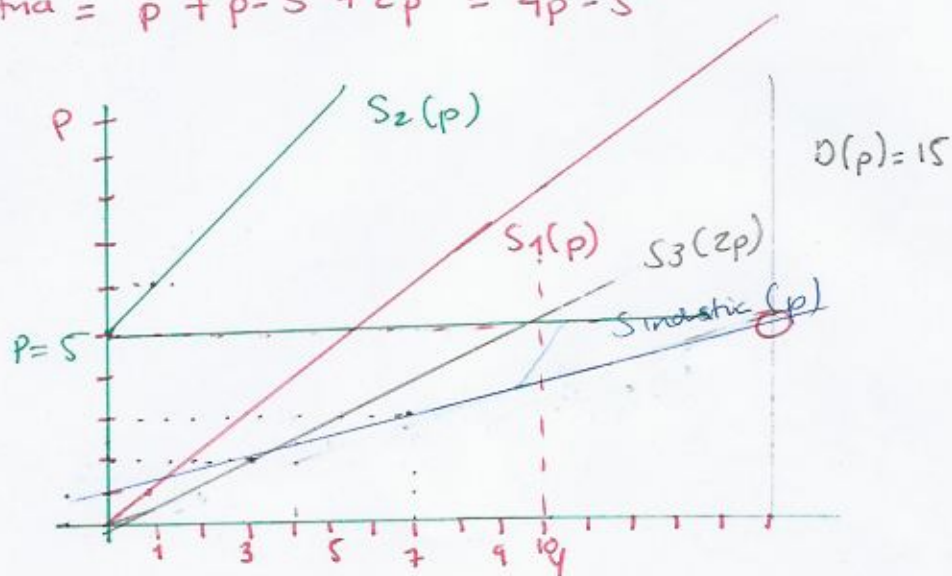 = p + p-5 + 2p = 4p-5
P
S2(p)
D(p)=15
S1(p)
S3(2p)
Sindustria(p)
P=5
1 3 5 7 9 10 y